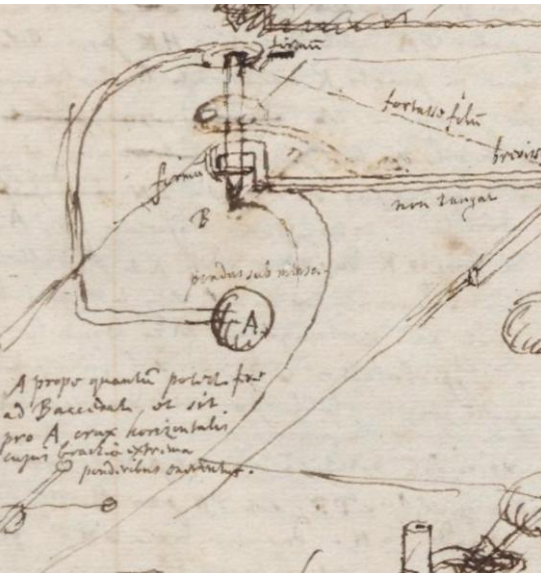 firmū
fortasse filū
brevis
firmū
non tangat
B
pondus sub mensa
A
A prope quantū potest fere
ad B accedat, et sit
pro A crux horizontalis
cujus brachia extrema
ponderibus onerentur.